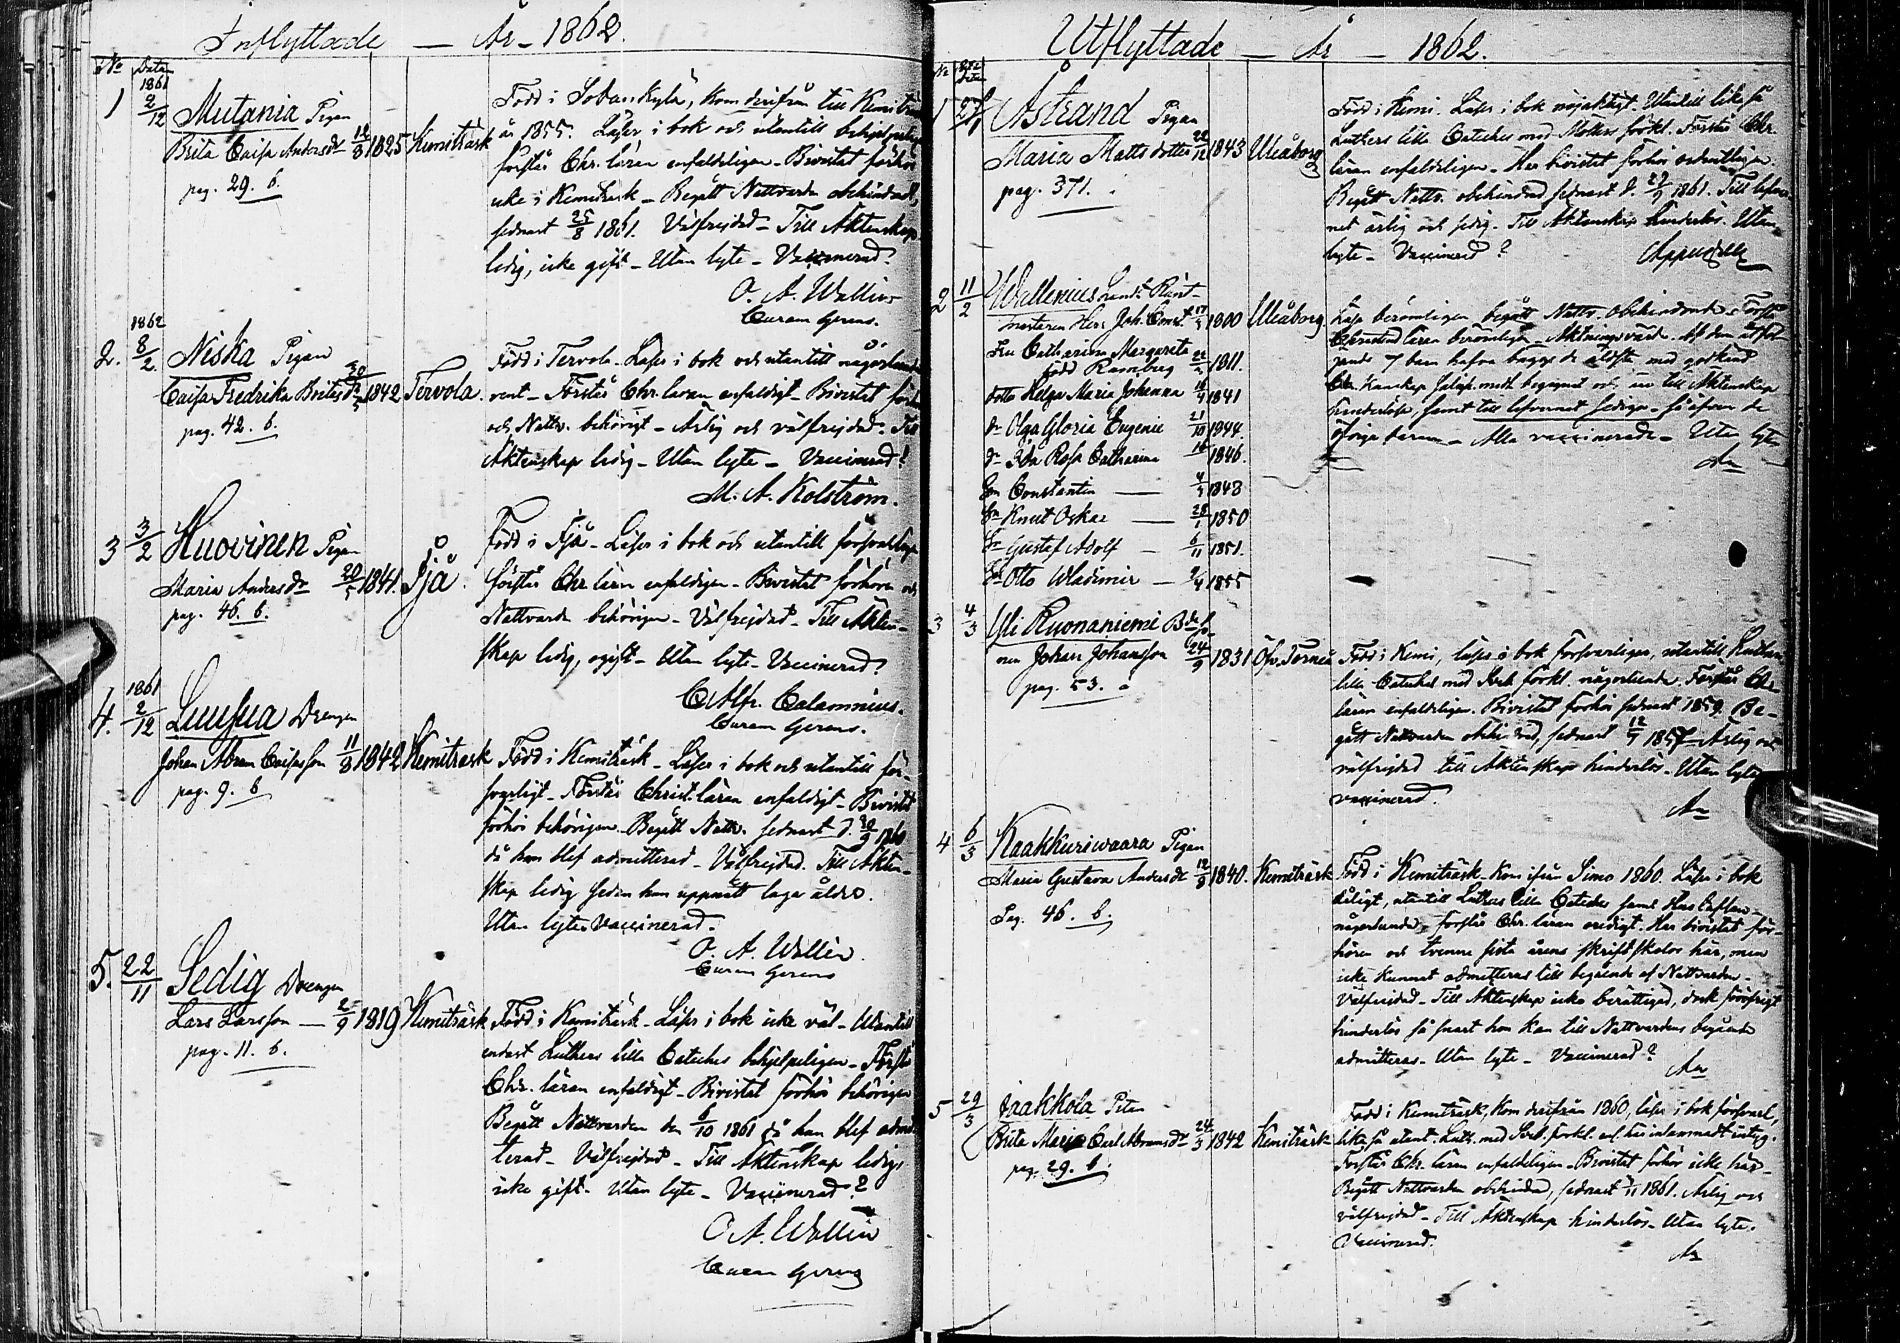 Inflyttade — År - 1862.
No Data
1861
1 2/12 Mutania Pigan
Brita Caisa Andersdr 12/3 1825 Kemiträsk
pag. 29. b.
Född i Sodankylä, kom derifrån till Kemiträsk
år 1855. Läser i bok och utantill behjelpeligen
förstår Chr. läran enfaldeligen - Bivistat förhör
icke i Kemiträsk - Begått Nattvarden obehindrad,
sednast 25/8 1861. Välfrejdad - Till Äktenskap
ledig, icke gift - Utan lyte - Vaccinerad?
O. A. Wallin
Curam Gerens.
1862
2. 8/2. Niska Pigan
Caisa Fredrika Britasdr 1842 Tervola.
pag. 42. b.
Född i Tervola. Läser i bok och utantill någorlunda
rent - Förstår Chr. läran enfaldigt - Bivistat förhör
och Nattv. behörigt - Ärlig och välfrejdad - Till
Äktenskap ledig - Utan lyte - Vaccinerad?
M. A. Kolström.
3 3/2 Huovinen Pigan
Maria Andersdr 20/5 1841. Ijå.
pag. 46. b.
Född i Ijå - Läser i bok och utantill försvarligt
förstår Chr. läran enfaldigen - Bivistat förhören och
Nattvarden behörigen - Välfrejdad - Till Äkten-
skap ledig, ogift - Utan lyte - Vaccinerad?
C. Alfr. Calamnius.
Curam Gerens.
1861
4. 2/12 Luusua Drengen
Johan Abram Caisasson 11/8 1842 Kemiträsk
pag. 9. b
Född i Kemiträsk - Läser i bok och utantill för-
svarligt - Förstår Christ. läran enfaldigt - Bivistat
förhör behörigen - Begått Nattv. sednast d. 30/9 1860
då han blef admitterad - Välfrejdad. Till Äkten-
skap ledig sedan han uppnått laga ålder.
Utan lyte Vaccinerad.
O. A. Wallin.
Curam Gerens
5. 22/11 Sedig Drengen
Lars Larsson — 25/9 1819 Kemiträsk
pag. 11. b.
Född i Kemiträsk - Läser i bok icke väl - Utantill
endast Luthers lilla Cateches behjelpeligen - Förstår
Chr. läran enfaldigt - Bivistat förhör behörigen
Begått Nattvarden den 6/10 1861 då han blef admit-
terad - Välfrejdad - Till Äktenskap ledig,
icke gift - Utan lyte - Vaccinerad?
O. A. Wallin
Curam Gerens
Utflyttade — År — 1862.
No Data
1 27/1 Åstrand Pigan
Maria Mattsdotter 22/12 1843 Uleåborg
pag. 371.
Född i Kemi. Läser i bok nöjaktigt. Utantill likaså
Luthers lilla Cateches med Möllers förkl. Förstår Chr.
läran enfaldeligen. Har bivistat förhör ordentligen.
Begått Nattv. obehindrad sednast d. 29/9 1861. Till lefver-
net ärlig och sedig. Till Äktenskap hinderlös. Utan
lyte - Vaccinerad?
2 11/2 Wallenius Landt Ränt-
mästaren Herr Joh. Ernst 1800 Uleåborg.
Fru Catharina Margareta
född Ramberg 1811.
dotter Helga Maria Johanna 1841
dr Olga Gloria Eugenie 21/10 1844.
dr Ida Rosa Catharina 1846.
Son Constantin — 1848
Sn Knut Oskar — 28/1 1850
Sn Gustaf Adolf — 6/11 1851.
Sn Otto Wladimir — 1855
Läsa berömligen begått Nattv. obehindrade. Förstå
Christendoms läran berömligen. Aktningsvärde. Af den utflyt-
tande 7 barn hafva begge de äldsta med godkänd
Chr. kunskap Salighetsmedl. begagnat och äro till Äktenskap
hinderlösa, samt till lefvernet sediga - såsom de
öfriga barnen - Alla vaccinerade - Utan lyte
3 4/3 Yli Ruonaniemi Bde S-
nen Johan Johansson 24/9 1831 Öfv. Torneå
pag. 53. a
Född i Kemi, läser i bok försvarligen, utantill Luthers
lilla Cateches med Seb. förkl. någorlunda. Förstår Chr.
läran enfaldeligen. Bivistat förhör sednast 1859. Be-
gått Nattvarden obehindrad, sednast 1857 - Ärlig och
välfrejdad till Äktenskap hinderlös - Utan lyte
vaccinerad.
4 6/3 Kaakkuriwaara Pigan
Maria Gustava Andersdr 12/9 1840. Kemiträsk
Pag. 46. b.
Född i Kemiträsk - Kom ifrån Simo 1860. Läser i bok
dåligt, utantill Luthers lilla Cateches samt Hustaflan
någorlunda - förstår Chr. läran oredigt. Har bivistat för-
hören och tvenne sista årens skriftskolor här, men
icke kunnat admitteras till begående af Nattvarden -
Välfrejdad - Till Äktenskap icke berättigad, dock föröfrigt
hinderlös så snart hon kan till Nattvardens begående
admitteras. Utan lyte - Vaccinerad?
5 29/3 Jaakkola Pigan
Brita Maria Carl Abramsdr 24/3 1842 Kemiträsk
pag. 29. b.
Född i Kemiträsk, kom derifrån 1860, läser i bok försvarl.,
likaså utant. Luth. med Seb. förkl.
Förstår Chr. läran enfaldeligen - Bivistat förhör icke här -
Begått Nattvarden obehindrad, sednast 1861. Ärlig och
välfrejdad - Till Äktenskap hinderlös - Utan lyte.
Vaccinerad.